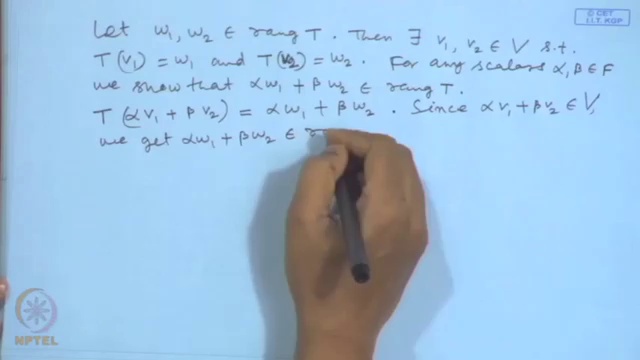 © CET
I.I.T. KGP
Let w₁, w₂ ∈ rang T. Then ∃ v₁, v₂ ∈ V s.t.
T(v₁) = w₁ and T(v₂) = w₂. For any scalars α, β ∈ F
we show that αw₁ + βw₂ ∈ rang T.
T(αv₁ + βv₂) = αw₁ + βw₂. Since αv₁ + βv₂ ∈ V,
we get αw₁ + βw₂ ∈ r
NPTEL